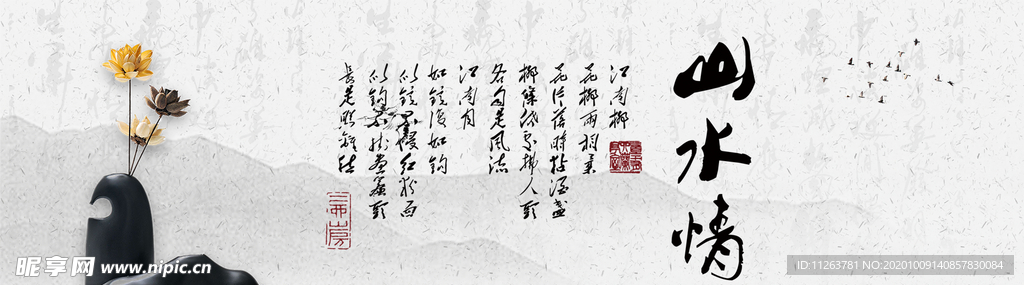 山水情
江南柳
花柳兩相柔
花片落時黏酒盞
柳條低處拂人頭
各自是風流
江南月
如鏡復如鉤
似鏡不侵紅粉面
似鉤不挂畫簾頭
長是照離愁
昵享网 www.nipic.cn
ID:11263781 NO:20201009140857830084